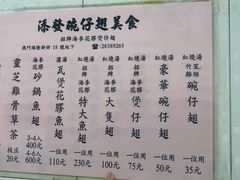 添發碗仔翅美食
招牌海參花膠煲仔翅
澳門福隆新街18號地下 ☎:28389265
紅燒湯 竹笙雞絲 碗仔翅 一位用 35元
紅燒湯 豪華碗仔翅 一位用 50元
紅燒湯 招牌 碗仔翅 一位用 75元
紅燒湯 招牌 大隻翅 一位用 100元
紅燒湯 招牌 特大魚翅 一位用 230元
濃湯 瓦煲花膠翅 一位用 110元
海參花膠 砂鍋魚翅 3-4人 400元 6人 600元
靈芝雞骨草茶 枝庄 20元